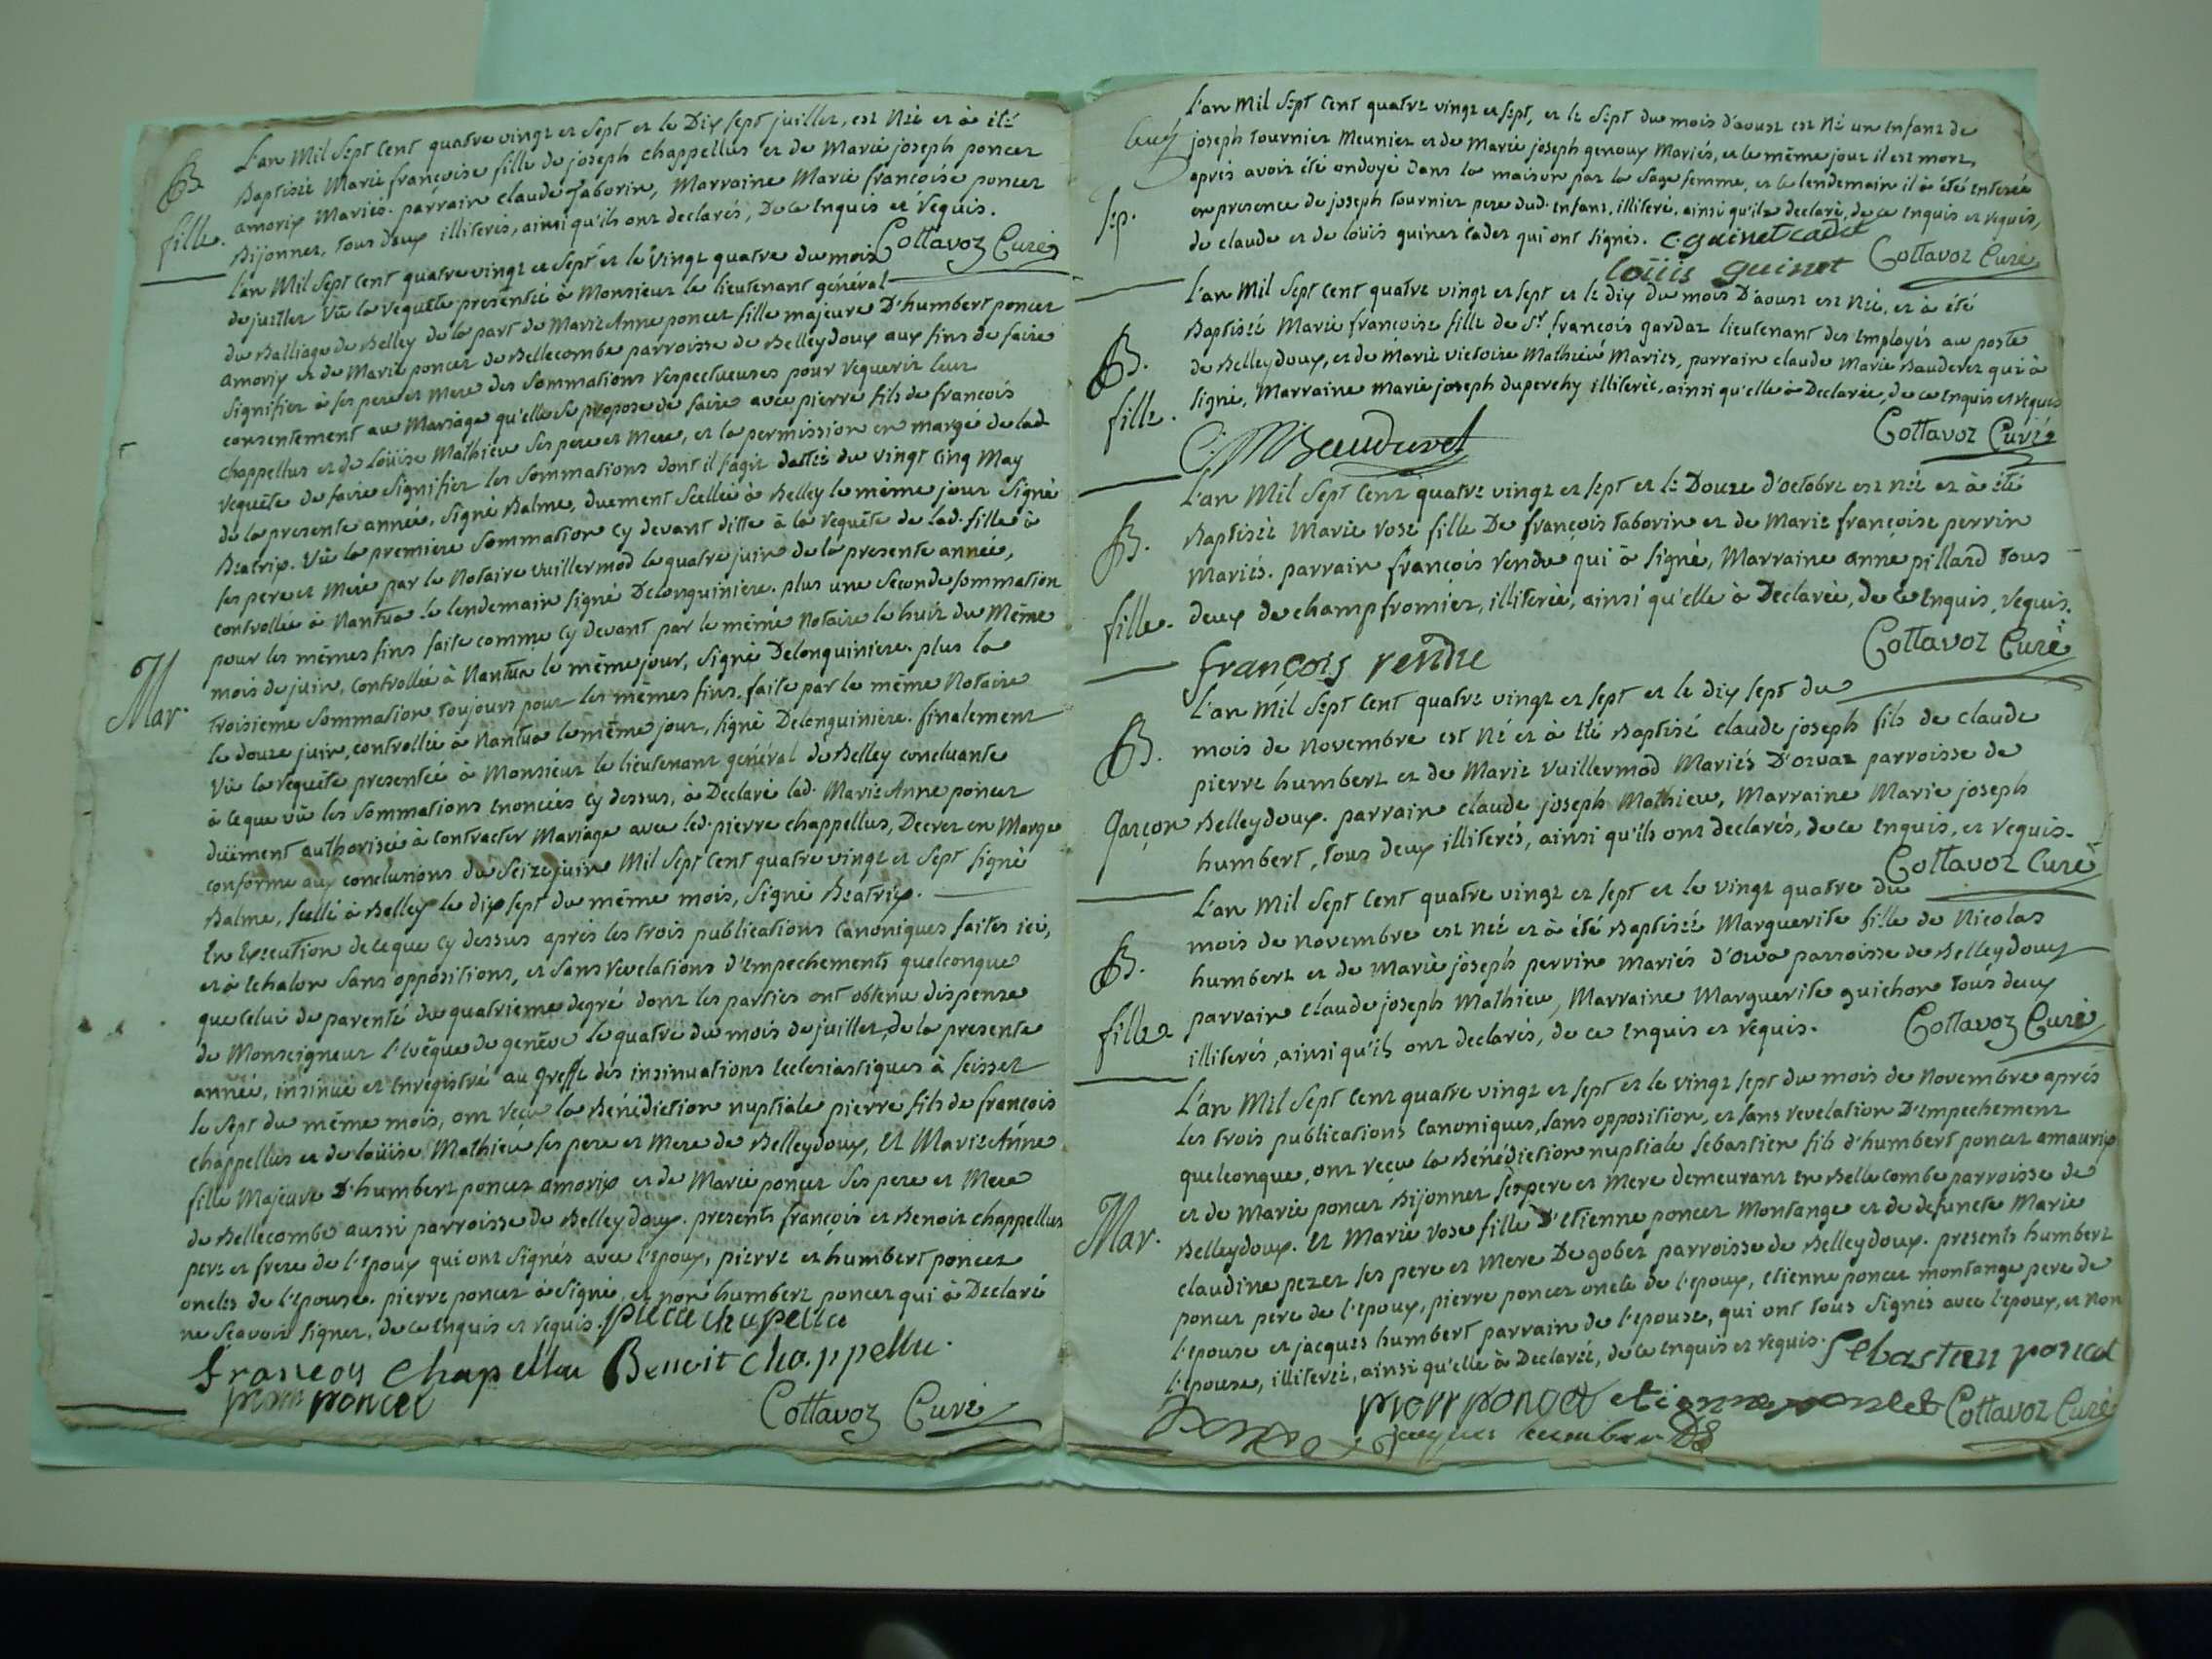 L'an Mil Sept Cent quatre vingt et Sept et le Dix sept juillet, est Née et à été
B. Baptisée Marie françoise fille de joseph chappellus et de Marie joseph poncet
amorix Mariés. parrain claude Taborin, Marraine Marie françoise poncet
fille. Bijonnet, tous Deux illiterés, ainsi qu'ils ont declarés, De ce Enquis et Requis.
Cottavoz Curé
L'an Mil Sept Cent quatre vingt et Sept et le Vingt quatre du mois
de juillet Vû la requête presentée à Monsieur le lieutenant général
du Balliage de Belley de la part de Marie Anne poncet fille majeure D'humbert poncet
amorix et de Marie poncet de Bellecombe parroisse de Belleydoux aux fins de faire
signifier à ses pere et Mere des Sommations respectueuses pour requerir leur
consentement au Mariage qu'elle se propose de faire avec pierre fils de françois
chappellus et de Loüise Mathieu ses pere et Mere, et la permission en marge de lad.
requête de faire signifier les Sommations dont il s'agit dattée du vingt cinq May
de la presente année, signé Balme, duement Scellée à Belley le même jour Signé
Beatrix. Vû la premiere Sommation cy devant ditte à la requête de lad. fille à
ses pere et Mere par le Notaire Vuillermod le quatre juin de la presente année,
controllée à Nantua le lendemain signé Delonguiniere. plus une Seconde Sommation
pour les mêmes fins faite comme cy devant par le même Notaire le huit du Même
Mar. mois de juin, controllée à Nantua le même jour, Signé Delonguiniere. plus la
troisieme Sommation toujours pour les mêmes fins, faite par le même Notaire
le douze juin, controllée à Nantua le même jour, signé Delonguiniere. finalement
Vû la requête presentée à Monsieur le lieutenant général de Belley concluante
à ce que vû les Sommations enoncées cy dessus, à Declaré lad. Marie Anne poncet
düëment authorisée à contracter Mariage avec led. pierre chappellus, Decret en Marge
conforme aux conclusions du Seize juin Mil Sept Cent quatre vingt et Sept signé
Balme, Scellé à Belley le dix sept du même mois, signé Beatrix.
En Execution de ce que cy dessus après les trois publications Canoniques faites ici,
et à Echalon sans oppositions, et sans revelations d'Empechements quelconque
que celui de parenté du quatrieme degré dont les parties ont obtenu dispense
de Monseigneur l'Evêque de genève le quatre du mois de juillet, de la presente
année, insinué et enregistré au greffe des insinuations Ecclesiastiques à Seissel
le sept du même mois, ont reçu la Bénédiction nuptiale pierre fils de françois
chappellus et de Loüise Mathieu ses pere et Mere de Belleydoux, et Marie Anne
fille Majeure D'humbert poncet amorix et de Marie poncet ses pere et Mere
de Bellecombe aussi parroisse de Belleydoux. presents françois et Benoit chappellus
pere et frere de l'epoux qui ont Signés avec l'epoux, pierre et humbert poncet
oncles de l'epouse. pierre poncet à signé, et non humbert poncet qui à Declaré
ne Sçavoir signer, de ce enquis et requis. pierre chapellu
françois chapellu Benoit chappellu
pierre poncet
Cottavoz Curé
L'an Mil Sept Cent quatre vingt et sept, et le Sept du mois d'aoust est Né un Enfant de
joseph tournier Meunier et de Marie joseph genoux Mariés, et le même jour il est mort,
après avoir été ondoyé dans la maison par la Sage femme, et le lendemain il à été Enterée
Sep. en presence de joseph tournier pere dud. Enfant, illiteré, ainsi qu'il a declaré, de ce enquis et requis,
de claude et de Loüis guinet cadet qui ont signés. C. guinet cadet
Loüis guinet Cottavoz Curé
L'an Mil Sept Cent quatre vingt et sept et le dix du mois D'aoust est Née, et à été
B. Baptisée Marie françoise fille de Sr. françois gardaz lieutenant des Employés au poste
de Belleydoux, et de Marie victoire Mathieu Mariés, parrain claude Marie Bauderet qui à
fille. signé, Marraine marie joseph duperchy illiterée, ainsi qu'elle à Declarée, de ce enquis et requis
Cottavoz Curé
L'an Mil Sept Cent quatre vingt et sept et le Douze d'octobre est née et à été
B. Baptisée Marie rose fille De françois taborin et de Marie françoise perrin
Mariés. parrain françois rendu qui à signé, Marraine anne pillard tous
fille. deux de champfromier, illiterée, ainsi qu'elle à Declarée, de ce Enquis, requis.
françois rendu Cottavoz Curé
L'an Mil Sept Cent quatre vingt et sept et le dix sept du
B. mois de Novembre est Né et à été Baptisé claude joseph fils de claude
pierre humbert et de Marie Vuillermod Mariés D'orvaz parroisse de
garçon Belleydoux. parrain claude joseph Mathieu, Marraine Marie joseph
humbert, tous deux illiterés, ainsi qu'ils ont declarés, de ce Enquis, et requis.
Cottavoz Curé
L'an Mil Sept Cent quatre vingt et sept et le vingt quatre du
mois de Novembre est née et à été Baptisée Marguerite fille de Nicolas
B. humbert et de Marie joseph perrin Mariés d'orva parroisse de Belleydoux
parrain claude joseph Mathieu, Marraine Marguerite guichon tous deux
fille illiterés, ainsi qu'ils ont declarés, de ce Enquis et requis. Cottavoz Curé
L'an Mil Sept Cent quatre vingt et sept et le vingt sept du mois de Novembre après
les trois publications Canoniques, sans opposition, et sans revelation D'Empechement
quelconque, ont reçu la Bénédiction nuptiale Sebastien fils d'humbert poncet amaurix
et de Marie poncet Bijonnet ses pere et Mere demeurant en Bellecombe parroisse de
Mar. Belleydoux. et Marie rose fille d'Etienne poncet Montange et de defuncte Marie
claudine perret ses pere et Mere De gobet parroisse de Belleydoux. presents humbert
poncet pere de l'epoux, pierre poncet oncle de l'epoux, Etienne poncet montange pere de
l'epouse et jacques humbert parrain de l'epouse, qui ont tous signés avec l'epoux, et non
l'epouse, illiterée, ainsi qu'elle à Declarée, de ce enquis et requis. Sebastien poncet
pierre poncet etienne poncet Cottavoz Curé
jacques humber